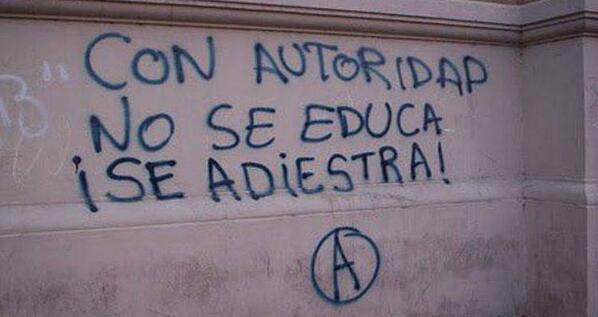 CON AUTORIDAD
NO SE EDUCA
¡SE ADiESTRA!
A